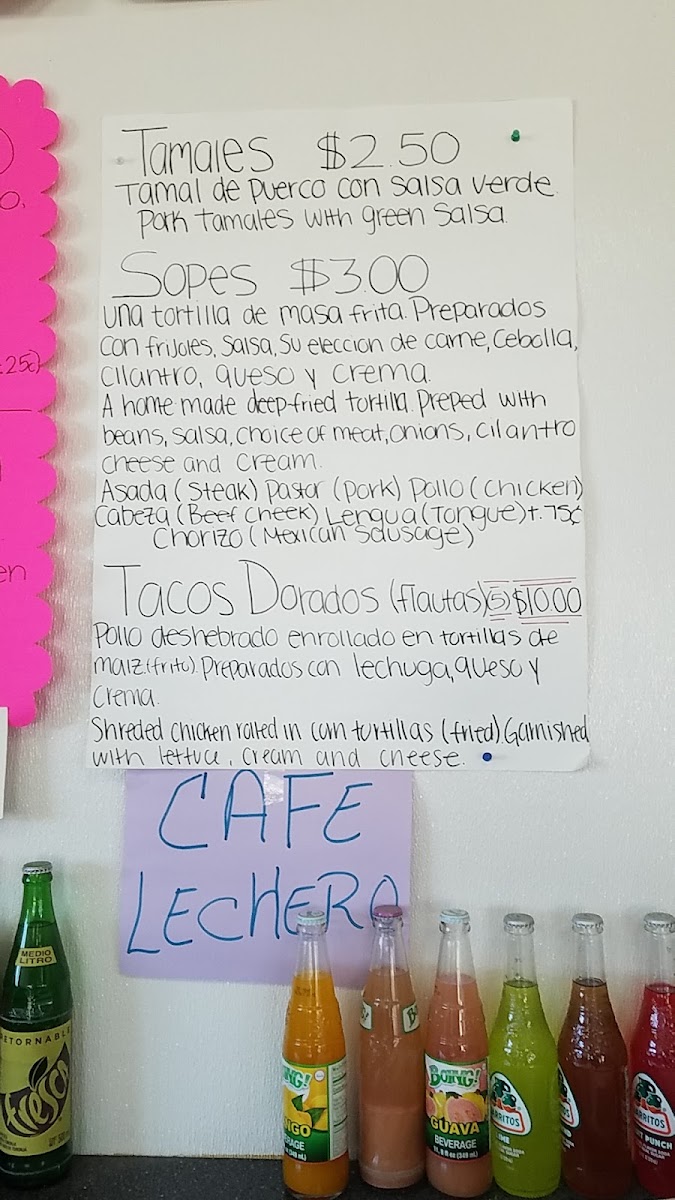 Tamales $2.50
Tamal de puerco con salsa verde.
Pork tamales with green Salsa.
Sopes $3.00
una tortilla de masa frita. Preparados
con frijoles, Salsa, Su eleccion de carne, Cebolla,
cilantro, queso y crema.
A home made deep-fried tortilla. Preped with
beans, salsa, choice of meat, onions, cilantro
cheese and cream.
Asada (Steak) Pastor (pork) Pollo (chicken)
Cabeza (Beef Cheek) Lengua (Tongue) +.75¢
Chorizo (Mexican Sausage)
Tacos Dorados (flautas) (5) $10.00
Pollo deshebrado enrollado en tortillas de
maiz (frito). Preparados con lechuga, queso y
crema.
Shreded chicken rolled in corn tortillas (fried). Garnished
with lettuce, cream and cheese.
CAFE
LECHERO
o,
25¢)
en
MEDIO
LITRO
RETORNABLE
fresca
ING!
NGO
RAGE
BOING!
GUAVA
BEVERAGE
11.8 fl oz (349 mL)
JARRITOS
ME
ARRITOS
T PUNCH